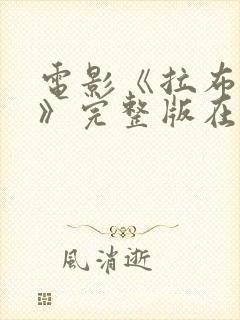 電影《拉布
》完整版在
風消逝